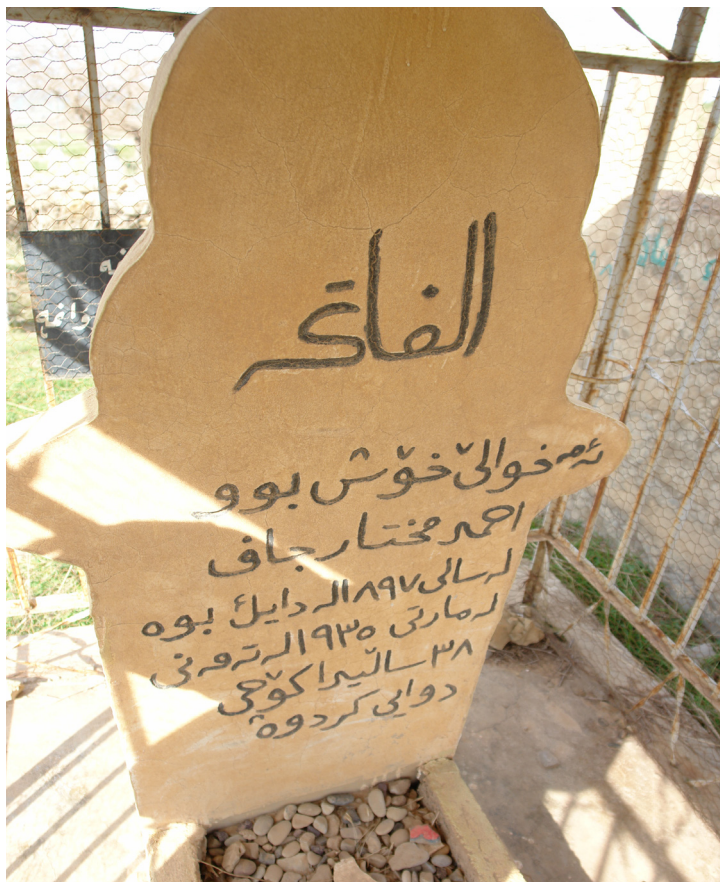 الفاتحه
ئەمە خوالێ خۆش بوو
احمد مختار جاف
لە سالی ١٨٩٧ لە دایك بوە
لە مارتی ١٩٣٥ لە تەمەنی
٣٨ سالێیدا کۆچی
دوایی کردوە